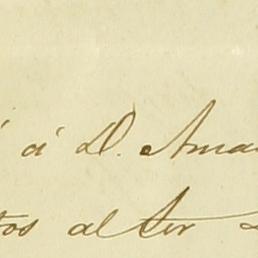 á D. Ama
tos al ter